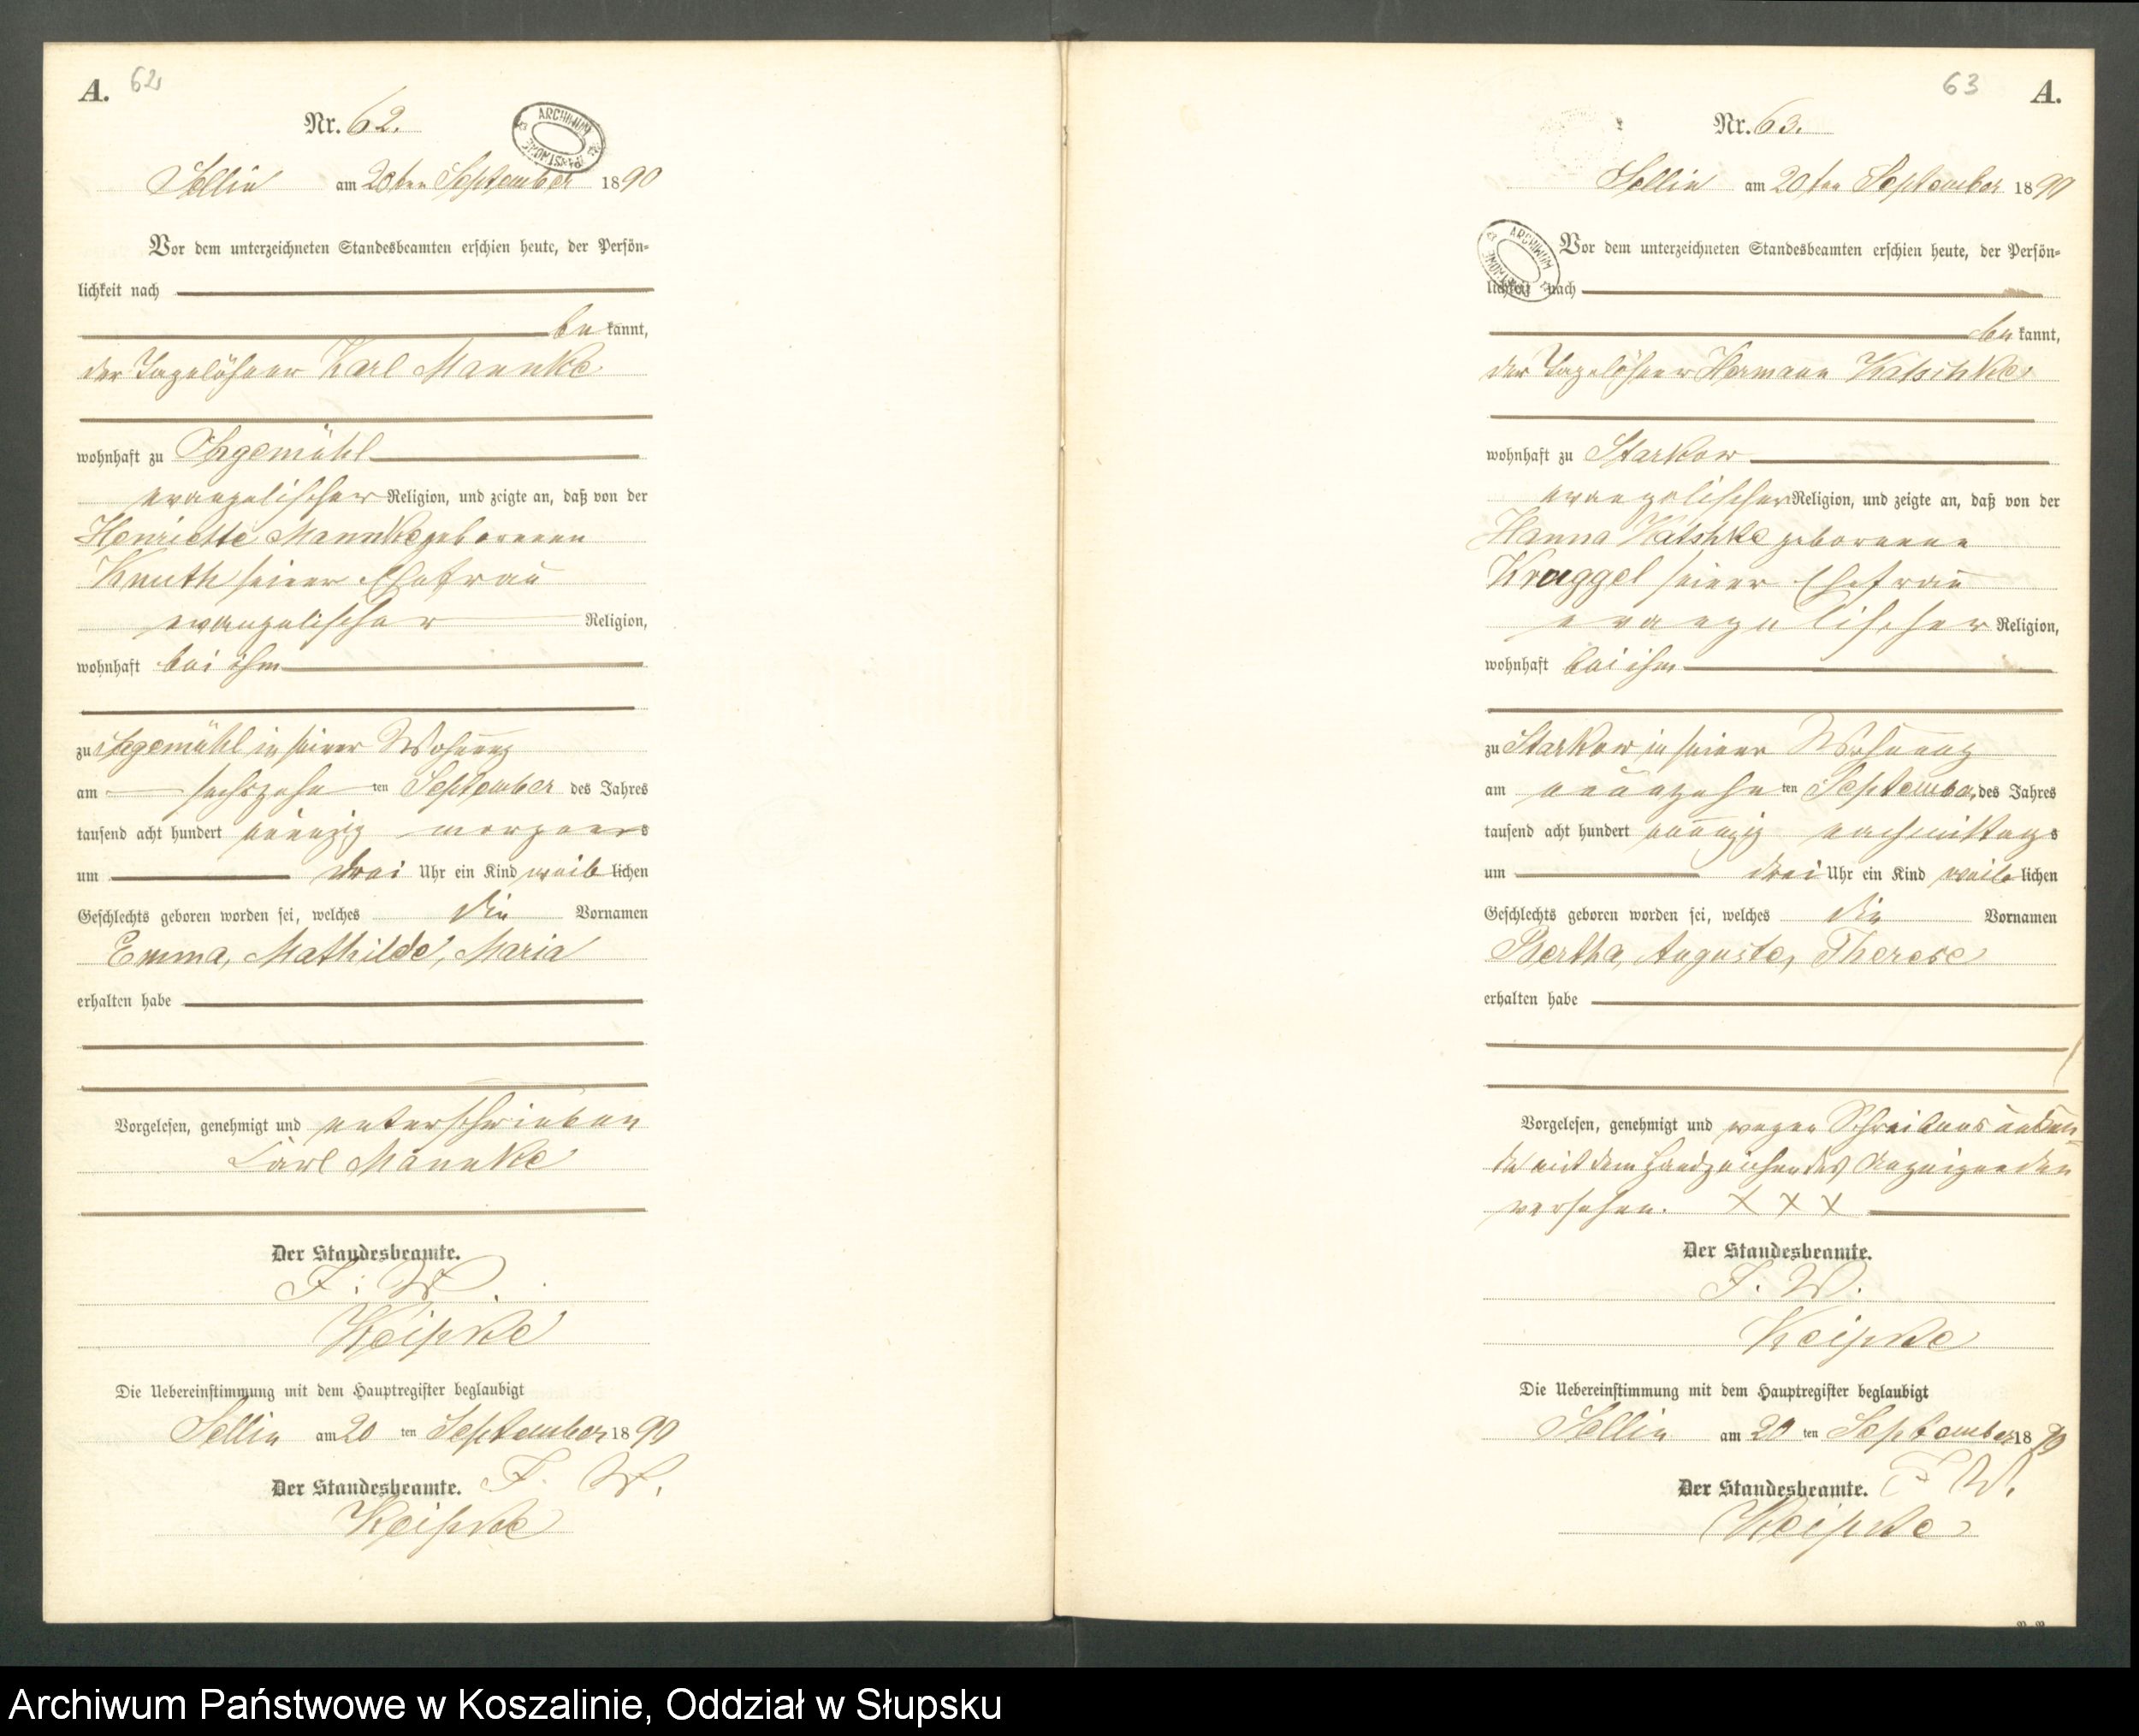 A. 62
Nr. 62.
ARCHIWUM PAŃSTWOWE
Sellin am 20ten September 1890
Vor dem unterzeichneten Standesbeamten erschien heute, der Persön-
lichkeit nach
be kannt,
der Tagelöhner Karl Mannke
wohnhaft zu
evangelischer Religion, und zeigte an, daß von der
Henriette Mannke geborenen
Knuth seiner Ehefrau
evangelischer Religion,
wohnhaft bei ihm
zu in seiner Wohnung
am sechszehn ten September des Jahres
tausend acht hundert neunzig morgens
um drei Uhr ein Kind weib lichen
Geschlechts geboren worden sei, welches die Vornamen
Emma, Mathilde, Maria
erhalten habe
Vorgelesen, genehmigt und unterschrieben
Karl Mannke
Der Standesbeamte.
J. V.
Keipke
Die Uebereinstimmung mit dem Hauptregister beglaubigt
Sellin am 20 ten September 1890
Der Standesbeamte. J. V.
Keipke
63 A.
Nr. 63.
Sellin am 20ten September 1890
ARCHIWUM PAŃSTWOWE
Vor dem unterzeichneten Standesbeamten erschien heute, der Persön-
lichkeit nach
be kannt,
der Tagelöhner Hermann Katschke
wohnhaft zu Starkow
evangelischer Religion, und zeigte an, daß von der
Hanna Katshke geborenen
Kraggel seiner Ehefrau
evangelischer Religion,
wohnhaft bei ihm
zu Starkow in seiner Wohnung
am neunzehn ten September des Jahres
tausend acht hundert neunzig nachmittags
um drei Uhr ein Kind weib lichen
Geschlechts geboren worden sei, welches die Vornamen
Bertha, Auguste, Therese
erhalten habe
Vorgelesen, genehmigt und wegen Schreibens unkun-
de mit dem Handzeichen des Anzeigenden
versehen. X X X
Der Standesbeamte.
J. V.
Keipke
Die Uebereinstimmung mit dem Hauptregister beglaubigt
Sellin am 20 ten September 1890
Der Standesbeamte. J. V.
Keipke
Archiwum Państwowe w Koszalinie, Oddział w Słupsku